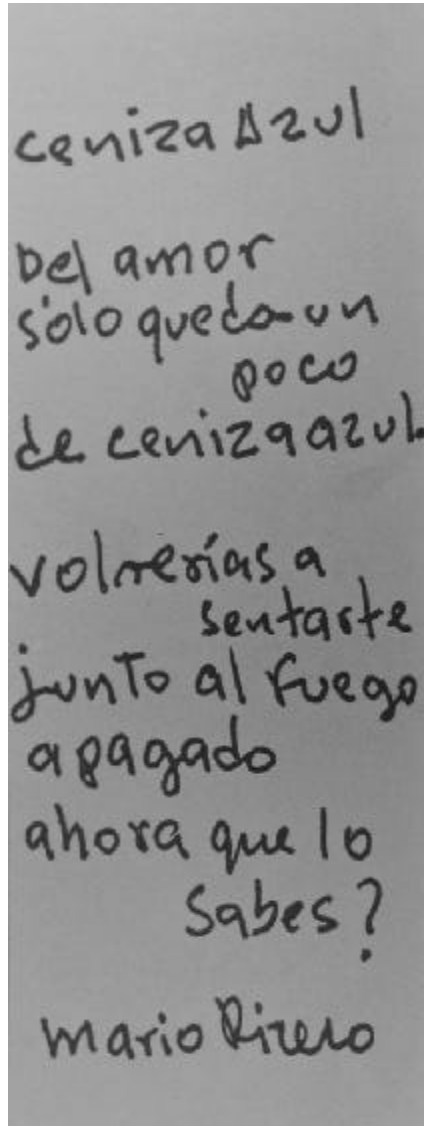 ceniza Azul
Del amor
sólo queda un
poco
de ceniza azul.
volverías a
sentarte
junto al fuego
apagado
ahora que lo
sabes?
Mario Rivero